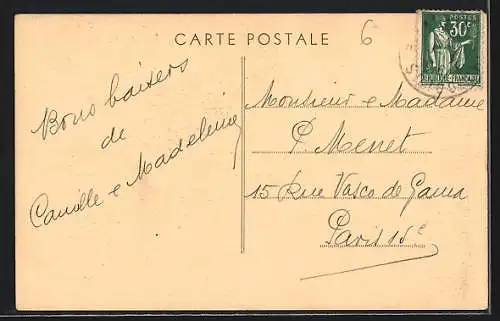 CARTE POSTALE
6
POSTES
30c
REPUBLIQUE FRANÇAISE
Bons baisers
de
Camille e Madeleine
Monsieur e Madame
P. Menet
15 Rue Vasco de Gama
Paris 15e